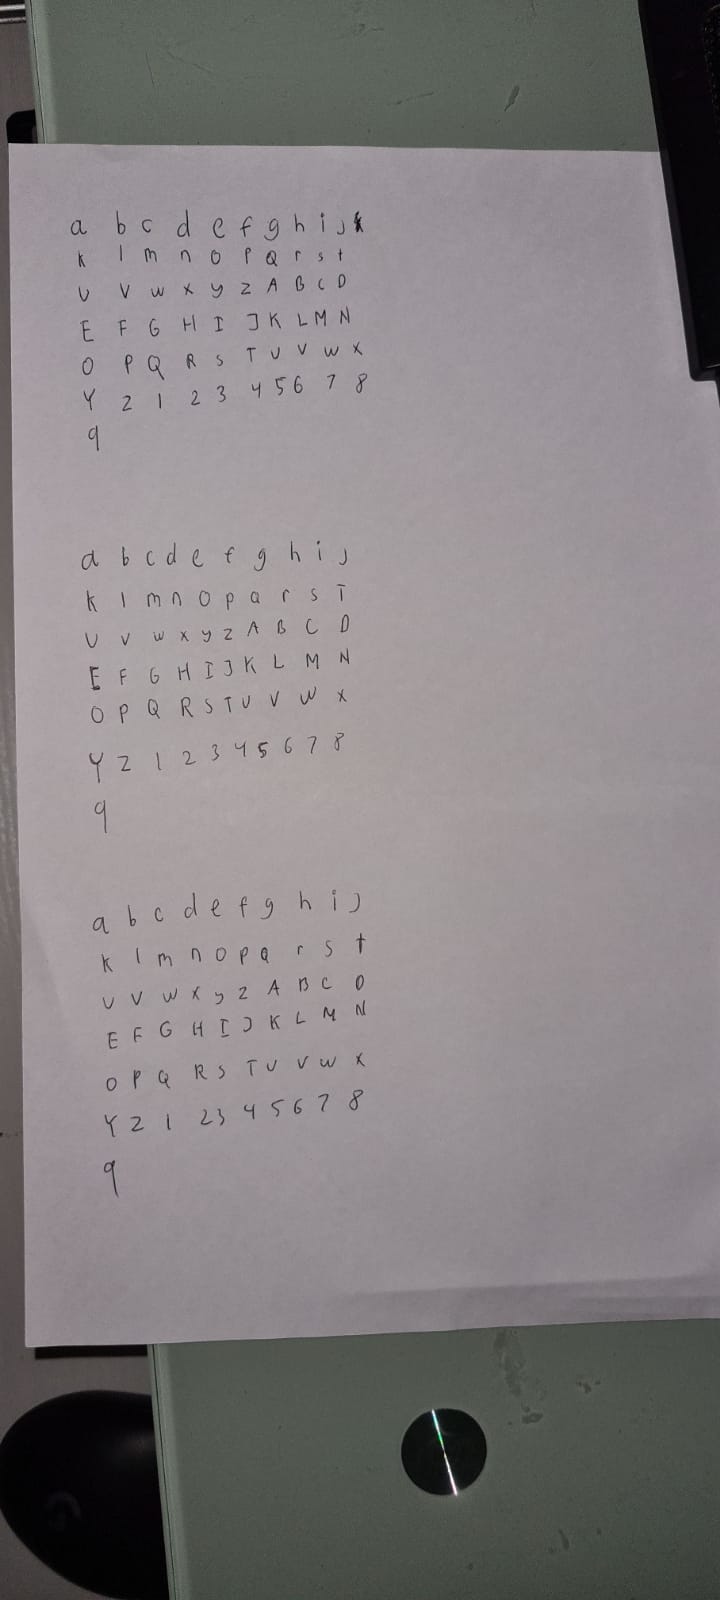 a b c d e f g h i j
k l m n o p Q r s t
U V w x y z A B C D
E F G H I J K L M N
O P Q R S T U V W X
Y Z 1 2 3 4 5 6 7 8
9
a b c d e f g h i j
k l m n o p q r s T
U V w x y z A B C D
E F G H I J K L M N
O P Q R S T U V W X
Y Z 1 2 3 4 5 6 7 8
9
a b c d e f g h i j
k l m n o p q r s t
U V W X y z A B C D
E F G H I J K L M N
O P Q R S T U V W X
Y Z 1 2 3 4 5 6 7 8
9